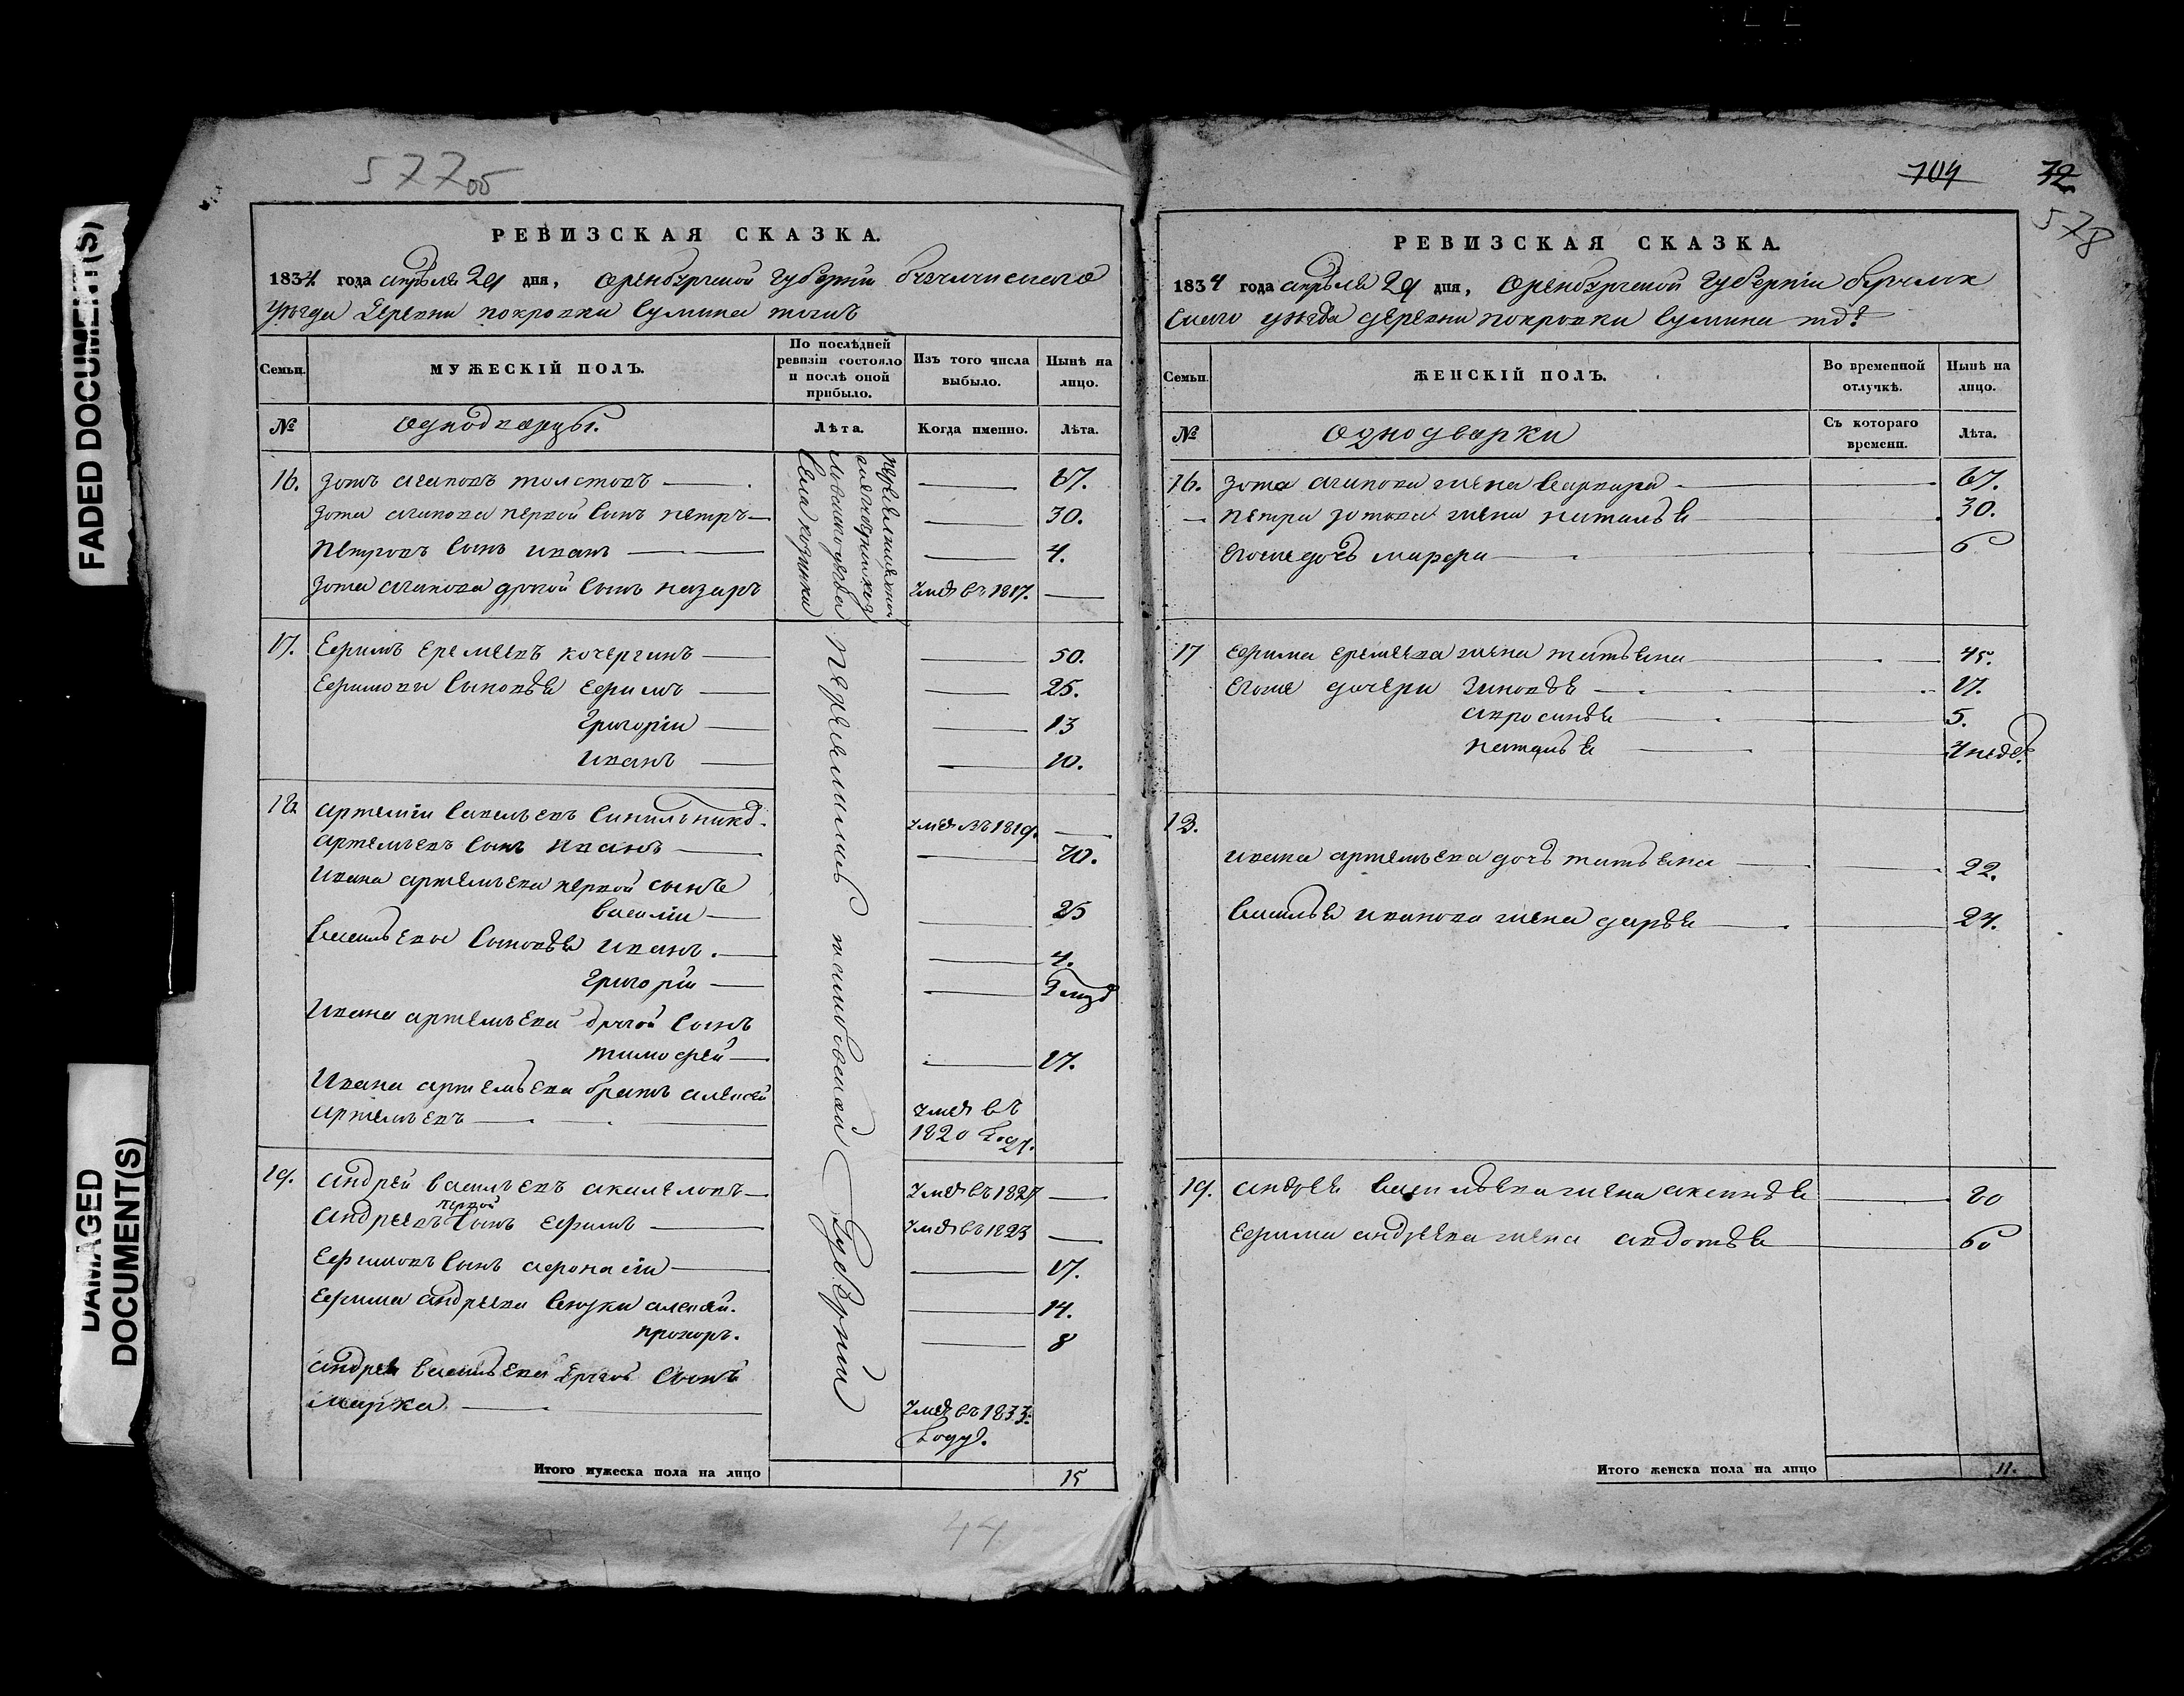 FADED DOCUMENT(S)
DAMAGED
DOCUMENT(S)
577 об
РЕВИЗСКАЯ СКАЗКА.
1834 года апреля 29 дня, Оренбургской губернии
уезда деревни покровки тожъ
Семьи. МУЖЕСКІЙ ПОЛЪ. По послѣдней ревизіи состояло и послѣ оной прибыло. Изъ того числа выбыло. Нынѣ на лицо.
№ Однодворцы. Лѣта. Когда именно. Лѣта.
16. Зотъ агаповъ толстовъ 67.
Зота агапова первой сынъ петръ 30.
Петровъ сынъ иванъ 4.
Зота агапова другой сынъ назаръ умре въ 1817.
17. Ефимъ еремеевъ кочергинъ 50.
Ефимовы сыновья ефимъ 25.
Григорій 13
Иванъ 10.
18 Артемій савельевъ умре въ 1819.
Артемьевъ сынъ иванъ 70.
Ивана артемьева первой сынъ
василій 25
Васильевы сыновья иванъ. 4.
Григорій
Ивана артемьева другой сынъ
тимофей 17.
Ивана артемьева братъ алексей
артемьевъ умре въ
1820 году.
19. Андрей васильевъ умре въ 1827
первой
Андреевъ сынъ ефимъ умре въ 1823
Ефимовъ сынъ афонасій 17.
Ефима андреева внуки алексей. 14.
прохоръ. 8
Андрея васильева другой сынъ
марка умре въ 1833
году.
села
губерніи
Итого мужеска пола на лицо 15
44
704 72
578
РЕВИЗСКАЯ СКАЗКА.
1834 года апреля 29 дня, Оренбургской губерніи
уезда деревни покровки тожъ
Семьи. ЖЕНСКІЙ ПОЛЪ. Во временной отлучкѣ. Нынѣ на лицо.
№ Однодворки Съ котораго времени. Лѣта.
16. Зота агапова жена варвара 67.
петра зотова жена наталья 30.
Егоже дочь марфа 6
17 Ефима еремеева жена татьяна 45.
Егоже дочери зиновья 17.
апросинья 5.
наталья 4 недѣ.
18.
Ивана артемьева дочь татьяна 22.
Василья иванова жена дарья 24.
19. Андрея васильева жена аксинья 80
Ефима андреева жена авдотья 60
Итого женска пола на лицо 11.